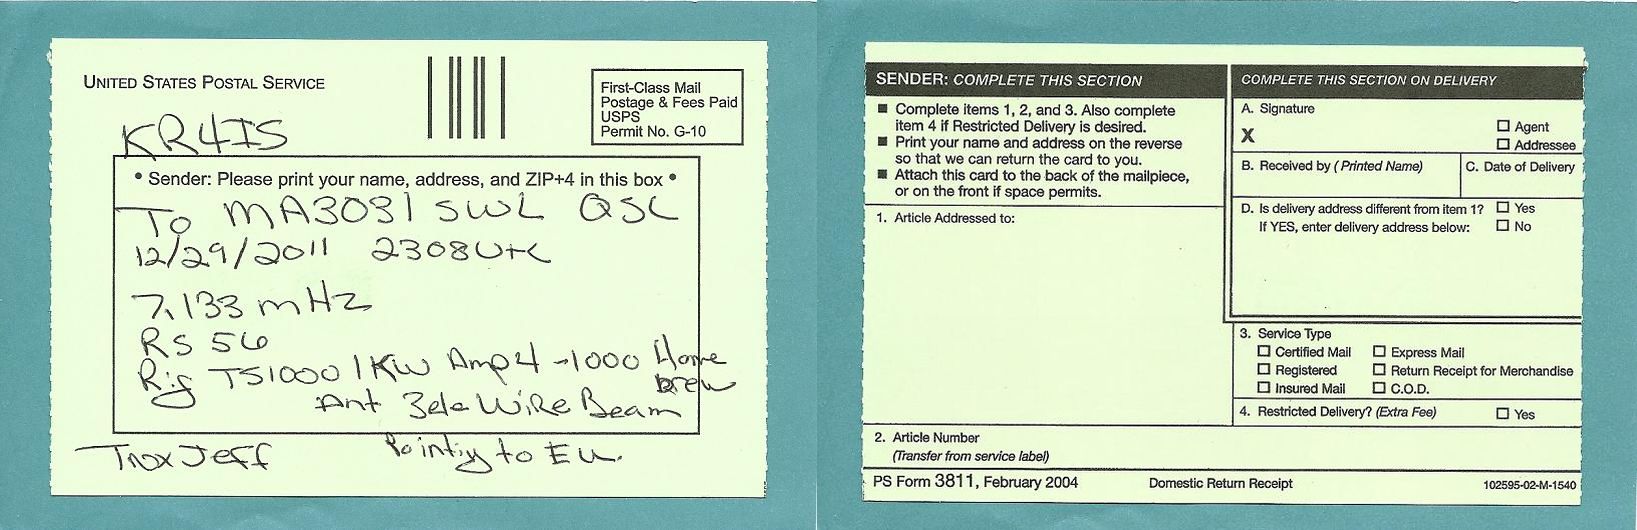 UNITED STATES POSTAL SERVICE
First-Class Mail
Postage & Fees Paid
USPS
Permit No. G-10
KR4IS
• Sender: Please print your name, address, and ZIP+4 in this box •
To MA3031 SWL QSL
12/29/2011 2308 Utc
7.133 mHz
RS 56
Rig TS1000 1KW Amp 4-1000 Home
brew
Ant 3ele Wire Beam
Pointing to EU.
Tnx Jeff
SENDER: COMPLETE THIS SECTION
■ Complete items 1, 2, and 3. Also complete
item 4 if Restricted Delivery is desired.
■ Print your name and address on the reverse
so that we can return the card to you.
■ Attach this card to the back of the mailpiece,
or on the front if space permits.
1. Article Addressed to:
2. Article Number
(Transfer from service label)
COMPLETE THIS SECTION ON DELIVERY
A. Signature
X
☐ Agent
☐ Addressee
B. Received by (Printed Name)
C. Date of Delivery
D. Is delivery address different from item 1? ☐ Yes
If YES, enter delivery address below: ☐ No
3. Service Type
☐ Certified Mail ☐ Express Mail
☐ Registered ☐ Return Receipt for Merchandise
☐ Insured Mail ☐ C.O.D.
4. Restricted Delivery? (Extra Fee) ☐ Yes
PS Form 3811, February 2004 Domestic Return Receipt 102595-02-M-1540